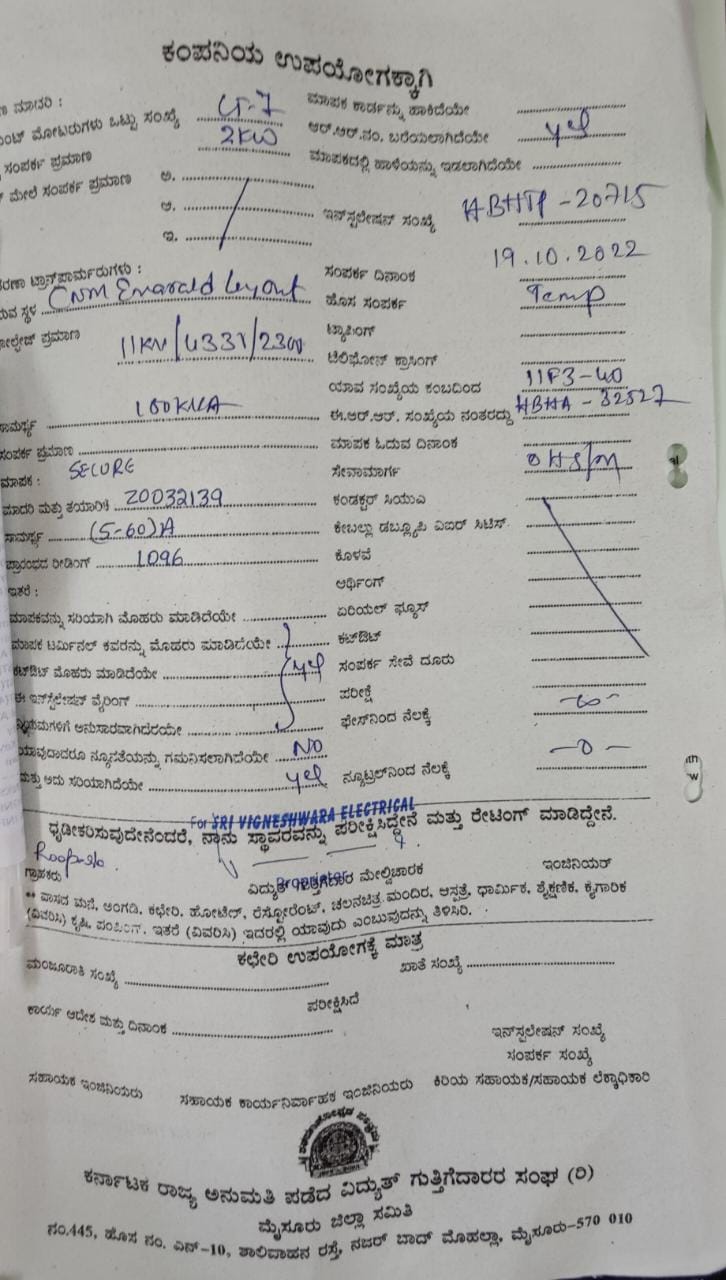 ಕಂಪನಿಯ ಉಪಯೋಗಕ್ಕಾಗಿ
ಮಾಪಕ ಕಾರ್ಡನ್ನು ಹಾಕಿದೆಯೇ
ಮೋಟರುಗಳು ಒಟ್ಟು ಸಂಖ್ಯೆ LT-7 ಆರ್.ಆರ್.ನಂ. ಬರೆಯಲಾಗಿದೆಯೇ yes
ಸಂಪರ್ಕ ಪ್ರಮಾಣ 2KW ಮಾಪಕದಲ್ಲಿ ಹಾಳೆಯನ್ನು ಇಡಲಾಗಿದೆಯೇ
ಮೇಲೆ ಸಂಪರ್ಕ ಪ್ರಮಾಣ ಅ.
ಆ. ಇನ್‌ಸ್ಟಲೇಷನ್ ಸಂಖ್ಯೆ HBHTP-20715
ಇ.
ಸಂಪರ್ಕ ದಿನಾಂಕ 19.10.2022
ಟ್ರಾನ್ಸ್‌ಫಾರ್ಮರುಗಳು :
ಸ್ಥಳ CNM Emarald Layout ಹೊಸ ಸಂಪರ್ಕ Temp
ಪ್ರಮಾಣ 11KV/433V/230V ಟ್ಯಾಪಿಂಗ್
ಟೆಲಿಫೋನ್ ಕ್ರಾಸಿಂಗ್
ಯಾವ ಸಂಖ್ಯೆಯ ಕಂಬದಿಂದ 11F3-40
ಸಾಮರ್ಥ್ಯ 100KVA ಈ.ಆರ್.ಆರ್. ಸಂಖ್ಯೆಯ ನಂತರದ್ದು HBHA-32527
ಸಂಪರ್ಕ ಪ್ರಮಾಣ ಮಾಪಕ ಓದುವ ದಿನಾಂಕ
ಮಾಪಕ : SECURE ಸೇವಾಮಾರ್ಗ OHS/M
ಮಾದರಿ ಮತ್ತು ತಯಾರಿಕೆ 20032139 ಕಂಡಕ್ಟರ್ ಸಿಯುಎ
ಸಾಮರ್ಥ್ಯ (5-60)A ಕೇಬಲ್ಲು ಡಬ್ಲ್ಯೂಪಿ ವಿಐಆರ್ ಸಿಟಿಸ್.
ಪ್ರಾರಂಭದ ರೀಡಿಂಗ್ 1096 ಕೊಳವೆ
ಇತರೆ : ಆರ್ಥಿಂಗ್
ಮಾಪಕವನ್ನು ಸರಿಯಾಗಿ ಮೊಹರು ಮಾಡಿದೆಯೇ ಏರಿಯಲ್ ಫ್ಯೂಸ್
ಮಾಪಕ ಟರ್ಮಿನಲ್ ಕವರನ್ನು ಮೊಹರು ಮಾಡಿದೆಯೇ ಕಟ್‌ಔಟ್
ಕಟ್‌ಔಟ್ ಮೊಹರು ಮಾಡಿದೆಯೇ yes ಸಂಪರ್ಕ ಸೇವೆ ದೂರು
ಈ ಇನ್‌ಸ್ಟಲೇಷನ್ ವೈರಿಂಗ್ ಪರೀಕ್ಷೆ
ನಿಯಮಗಳಿಗೆ ಅನುಸಾರವಾಗಿದೆಯೇ ಫೇಸ್‌ನಿಂದ ನೆಲಕ್ಕೆ -∞-
ಯಾವುದಾದರೂ ನ್ಯೂನತೆಯನ್ನು ಗಮನಿಸಲಾಗಿದೆಯೇ NO
ಮತ್ತು ಅದು ಸರಿಯಾಗಿದೆಯೇ yes ನ್ಯೂಟ್ರಲ್‌ನಿಂದ ನೆಲಕ್ಕೆ -0-
For SRI VIGNESHWARA ELECTRICAL
ಧೃಡೀಕರಿಸುವುದೇನೆಂದರೆ, ನಾನು ಸ್ಥಾವರವನ್ನು ಪರೀಕ್ಷಿಸಿದ್ದೇನೆ ಮತ್ತು ರೇಟಿಂಗ್ ಮಾಡಿದ್ದೇನೆ.
Proprietor
ಗ್ರಾಹಕರು ವಿದ್ಯುತ್ ಗುತ್ತಿಗೆದಾರ ಮೇಲ್ವಿಚಾರಕ ಇಂಜಿನಿಯರ್
** ವಾಸದ ಮನೆ, ಅಂಗಡಿ, ಕಛೇರಿ, ಹೋಟೆಲ್, ರೆಸ್ಟೋರೆಂಟ್, ಚಲನಚಿತ್ರ ಮಂದಿರ, ಆಸ್ಪತ್ರೆ, ಧಾರ್ಮಿಕ, ಶೈಕ್ಷಣಿಕ, ಕೈಗಾರಿಕ
(ವಿವರಿಸಿ) ಕೃಷಿ, ಪಂಪಿಂಗ್, ಇತರೆ (ವಿವರಿಸಿ) ಇದರಲ್ಲಿ ಯಾವುದು ಎಂಬುವುದನ್ನು ತಿಳಿಸಿರಿ.
ಕಛೇರಿ ಉಪಯೋಗಕ್ಕೆ ಮಾತ್ರ
ಮಂಜೂರಾತಿ ಸಂಖ್ಯೆ ಖಾತೆ ಸಂಖ್ಯೆ
ಪರೀಕ್ಷಿಸಿದೆ
ಕಾರ್ಯ ಆದೇಶ ಮತ್ತು ದಿನಾಂಕ
ಇನ್‌ಸ್ಟಲೇಷನ್ ಸಂಖ್ಯೆ
ಸಂಪರ್ಕ ಸಂಖ್ಯೆ
ಸಹಾಯಕ ಇಂಜಿನಿಯರು ಸಹಾಯಕ ಕಾರ್ಯನಿರ್ವಾಹಕ ಇಂಜಿನಿಯರು ಕಿರಿಯ ಸಹಾಯಕ/ಸಹಾಯಕ ಲೆಕ್ಕಾಧಿಕಾರಿ
ಕರ್ನಾಟಕ ರಾಜ್ಯ ಅನುಮತಿ ಪಡೆದ ವಿದ್ಯುತ್ ಗುತ್ತಿಗೆದಾರರ ಸಂಘ (ರಿ)
ಮೈಸೂರು ಜಿಲ್ಲಾ ಸಮಿತಿ
ನಂ.445, ಹೊಸ ನಂ. ಎನ್-10, ಶಾಲಿವಾಹನ ರಸ್ತೆ, ನಜರ್ ಬಾದ್ ಮೊಹಲ್ಲಾ, ಮೈಸೂರು-570 010